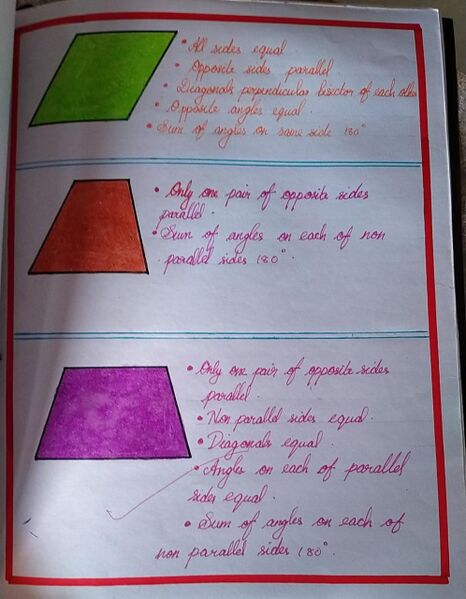 • All sides equal.
• Opposite sides parallel
• Diagonals perpendicular bisector of each other
• Opposite angles equal.
• Sum of angles on same side 180°
• Only one pair of opposite sides
parallel.
• Sum of angles on each of non
parallel sides 180°.
• Only one pair of opposite sides
parallel.
• Non parallel sides equal.
• Diagonals equal.
• Angles on each of parallel
sides equal.
• Sum of angles on each of
non parallel sides 180°.